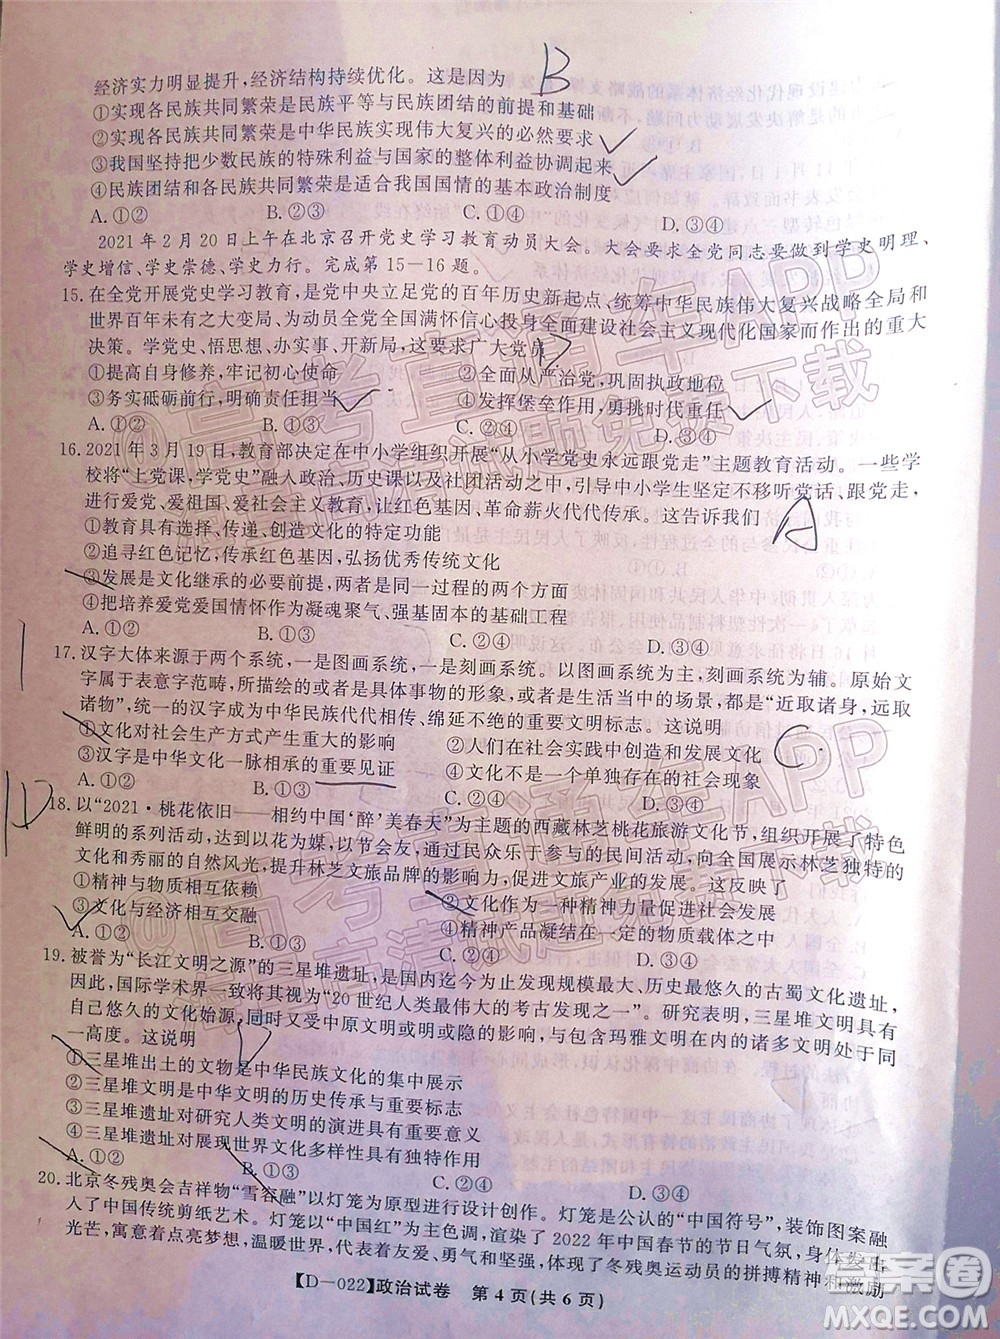 经济实力明显提升，经济结构持续优化。这是因为 B
①实现各民族共同繁荣是民族平等与民族团结的前提和基础
②实现各民族共同繁荣是中华民族实现伟大复兴的必然要求
③我国坚持把少数民族的特殊利益与民族的整体利益协调起来
④民族团结和各民族共同繁荣是适合我国国情的基本政治制度
A.①② B.②③ C.①④ D.③④
2021年2月20日上午在北京召开党史学习教育动员大会。大会要求全党同志要做到学史明理、
学史增信、学史崇德、学史力行。完成第15—16题。
15.在全党开展党史学习教育，是党中央立足党的百年历史新起点、统筹中华民族伟大复兴战略全局和
世界百年未有之大变局、为动员全党全国满怀信心投身全面建设社会主义现代化国家而作出的重大
决策。学党史、悟思想、办实事、开新局，这要求广大党员 D
①提高自身修养，牢记初心使命 ②全面从严治党，巩固执政地位
③务实砥砺前行，明确责任担当 ④发挥堡垒作用，勇挑时代重任
A.①② B.①③ C.②④ D.③④
16.2021年3月19日，教育部决定在中小学组织开展“从小学党史永远跟党走”主题教育活动。一些学
校将“上党课，学党史”融入政治、历史课以及社团活动之中，引导中小学生坚定不移听党话、跟党走，
进行爱党、爱祖国、爱社会主义教育，让红色基因、革命薪火代代传承。这告诉我们 A
①教育具有选择、传递、创造文化的特定功能
②追寻红色记忆，传承红色基因，弘扬优秀传统文化
③发展是文化继承的必要前提，两者是同一过程的两个方面
④把培养爱党爱国情怀作为凝魂聚气、强基固本的基础工程
A.①② B.①③ C.②④ D.③④
17.汉字大体来源于两个系统，一是图画系统，一是刻画系统。以图画系统为主，刻画系统为辅。原始文
字属于表意字范畴，所描绘和记录的具体事物的形象，或者是生活当中的场景，都是“近取诸身，远取
诸物”，统一的汉字成为中华民族代代相传、绵延不绝的重要文明标志。这说明 C
①文化对社会生产方式产生重大的影响 ②人们在社会实践中创造和发展文化
③汉字是中华文化一脉相承的重要见证 ④文化是一个单独存在的社会现象
A.①② B.①③ C.②③ D.②④
18.以“2021·桃花依旧——相约中国‘醉’美春天”为主题的西藏林芝桃花旅游文化节，组织开展了特色
鲜明的系列活动，达到以花为媒，以节会友，通过民众乐于参与的民间活动，向全国展示林芝独特的
文化和秀丽的自然风光，提升林芝文旅品牌的影响力，促进文旅产业的发展。这反映了
①精神与物质相互依赖 ②文化作为一种精神力量促进社会发展
③文化与经济相互交融 ④精神产品凝结在一定的物质载体之中
A.①② B.①③ C.②④ D.③④
19.被誉为“长江文明之源”的三星堆遗址，是国内迄今为止发现规模最大、历史最悠久的古蜀文化遗址，
因此，国际学术界一致将其视为“20世纪人类最伟大的考古发现之一”。研究表明，三星堆文明有自
己悠久的文化始源，同时又与中原文明或明或隐的影响，与包括玛雅文明在内的诸多文明处于同
一高度。这说明 D
①三星堆出土的文物是中华民族文化的集中展示
②三星堆文明是中华文明的重要组成部分
③三星堆遗址对研究人类文明的演进具有重要作用
④三星堆遗址对展现世界文化多样性具有独特作用
A.①② B.①③ C.②④ D.③④
20.北京冬残奥会吉祥物“雪容融”以灯笼为原型进行设计创作。灯笼是公认的“中国符号”，装饰图案融
入了中国传统剪纸艺术。灯笼以“中国红”为主色调，渲染了2022年中国春节的节日气氛，身体发出
光芒，寓意着点亮梦想，温暖世界，代表着友爱、勇气和坚强，体现了冬残奥运动员的拼搏精神和激励
【D—022】政治试卷 第4页（共6页）
答案圈